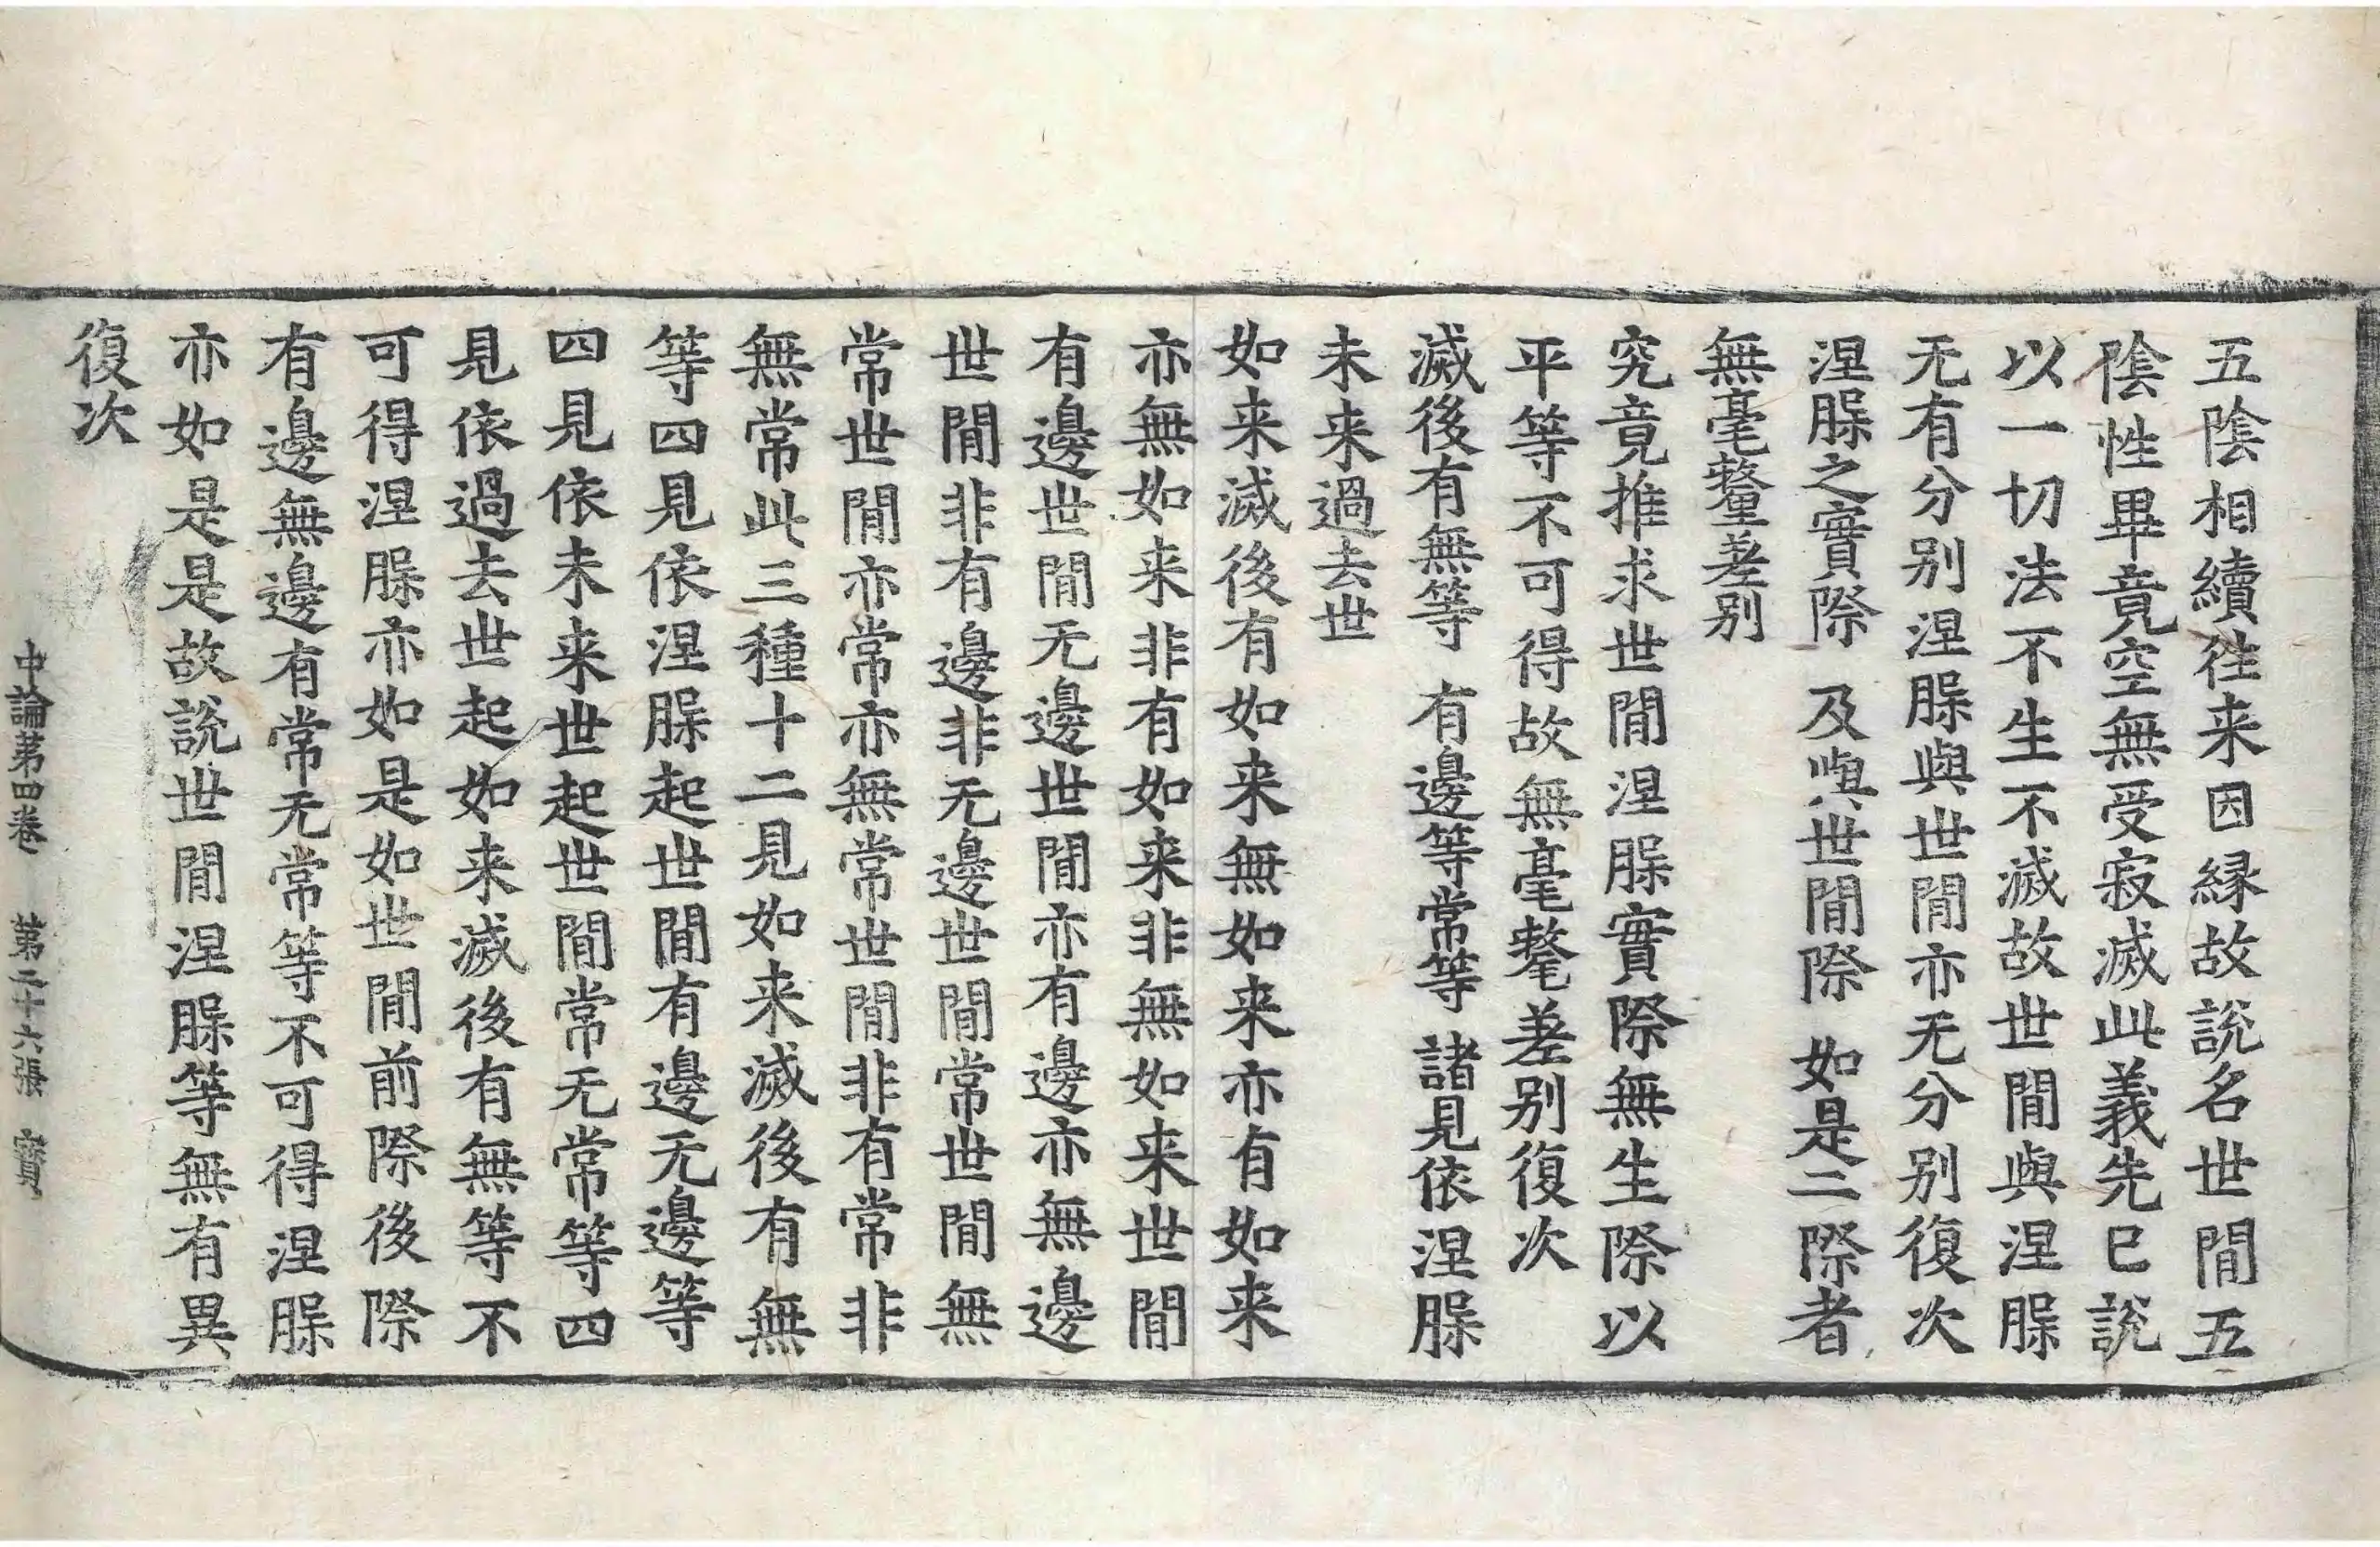 五陰相續徃来因縁故說名世間五
陰性畢竟空無受寂滅此義先已說
以一切法不生不滅故世間與涅䏶
无有分别涅䏶與世間亦无分别復次
涅䏶之實際　及與世間際　如是二際者
無毫氂差别
究竟推求世間涅䏶實際無生際以
平等不可得故無毫氂差别復次
滅後有無等　有邊等常等　諸見依涅䏶
未来過去世
如来滅後有如来無如来亦有如来
亦無如来非有如来非無如来世間
有邊世間无邊世間亦有邊亦無邊
世間非有邊非无邊世間常世間無
常世間亦常亦無常世間非有常非
無常此三種十二見如来滅後有無
等四見依涅䏶起世間有邊无邊等
四見依未来世起世間常无常等四
見依過去世起如来滅後有無等不
可得涅䏶亦如是如世間前際後際
有邊無邊有常无常等不可得涅䏶
亦如是是故說世間涅䏶等無有異
復次
中論第四卷　第二十六張　寶